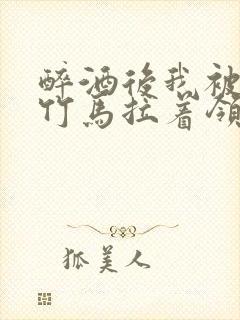 醉酒後我被
竹馬拉着領
狐美人